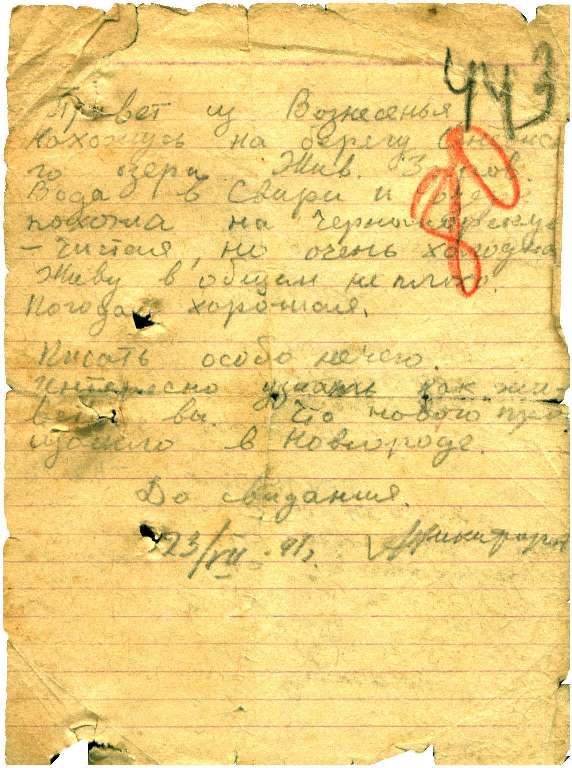 443
Привет из Вознесенья
Нахожусь на берегу
го озера. Жив. Здоров.
Вода в Свири и
похожа на
- чистая, но очень холодная
Живу в общем не плохо.
Погода хорошая.
Писать особо нечего.
Интересно узнать как жи-
вы. Что нового про
изошло в Новгороде.
До свидания.
23/VII-41г. Никифоров